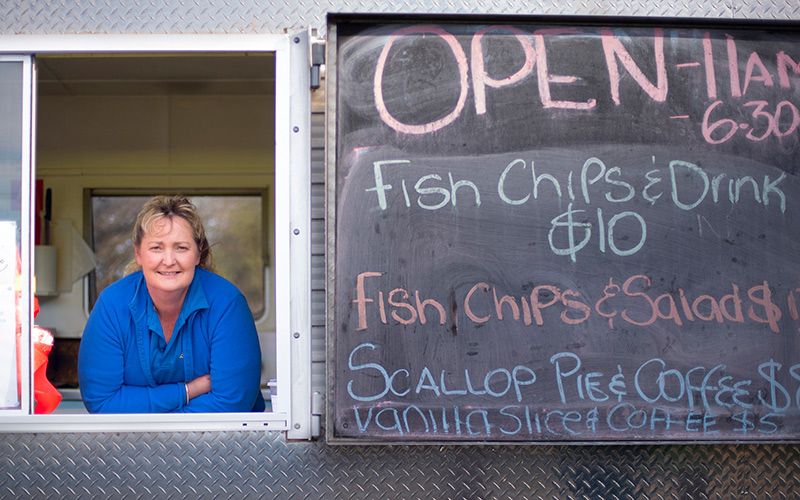 OPEN - 11AM
- 6:30
Fish Chips & Drink
$10
Fish Chips & Salad $1
Scallop Pie & Coffee $8
Vanilla Slice & Coffee $5